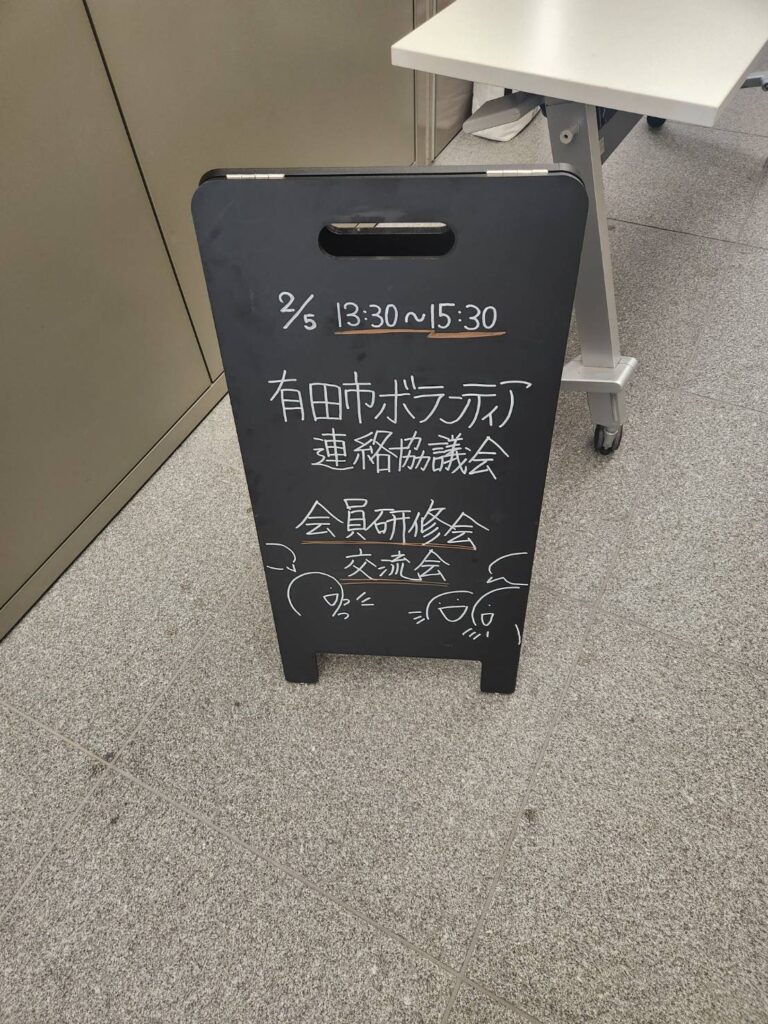 2/5 13:30~15:30
有田市ボランティア
連絡協議会
会員研修会
交流会